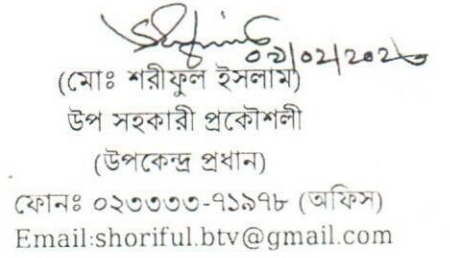 ০১/০২/২০২৩
(মোঃ শরীফুল ইসলাম)
উপ সহকারী প্রকৌশলী
(উপকেন্দ্র প্রধান)
ফোনঃ ০২৩৩৩৩-৭১৯৭৮ (অফিস)
Email:shoriful.btv@gmail.com